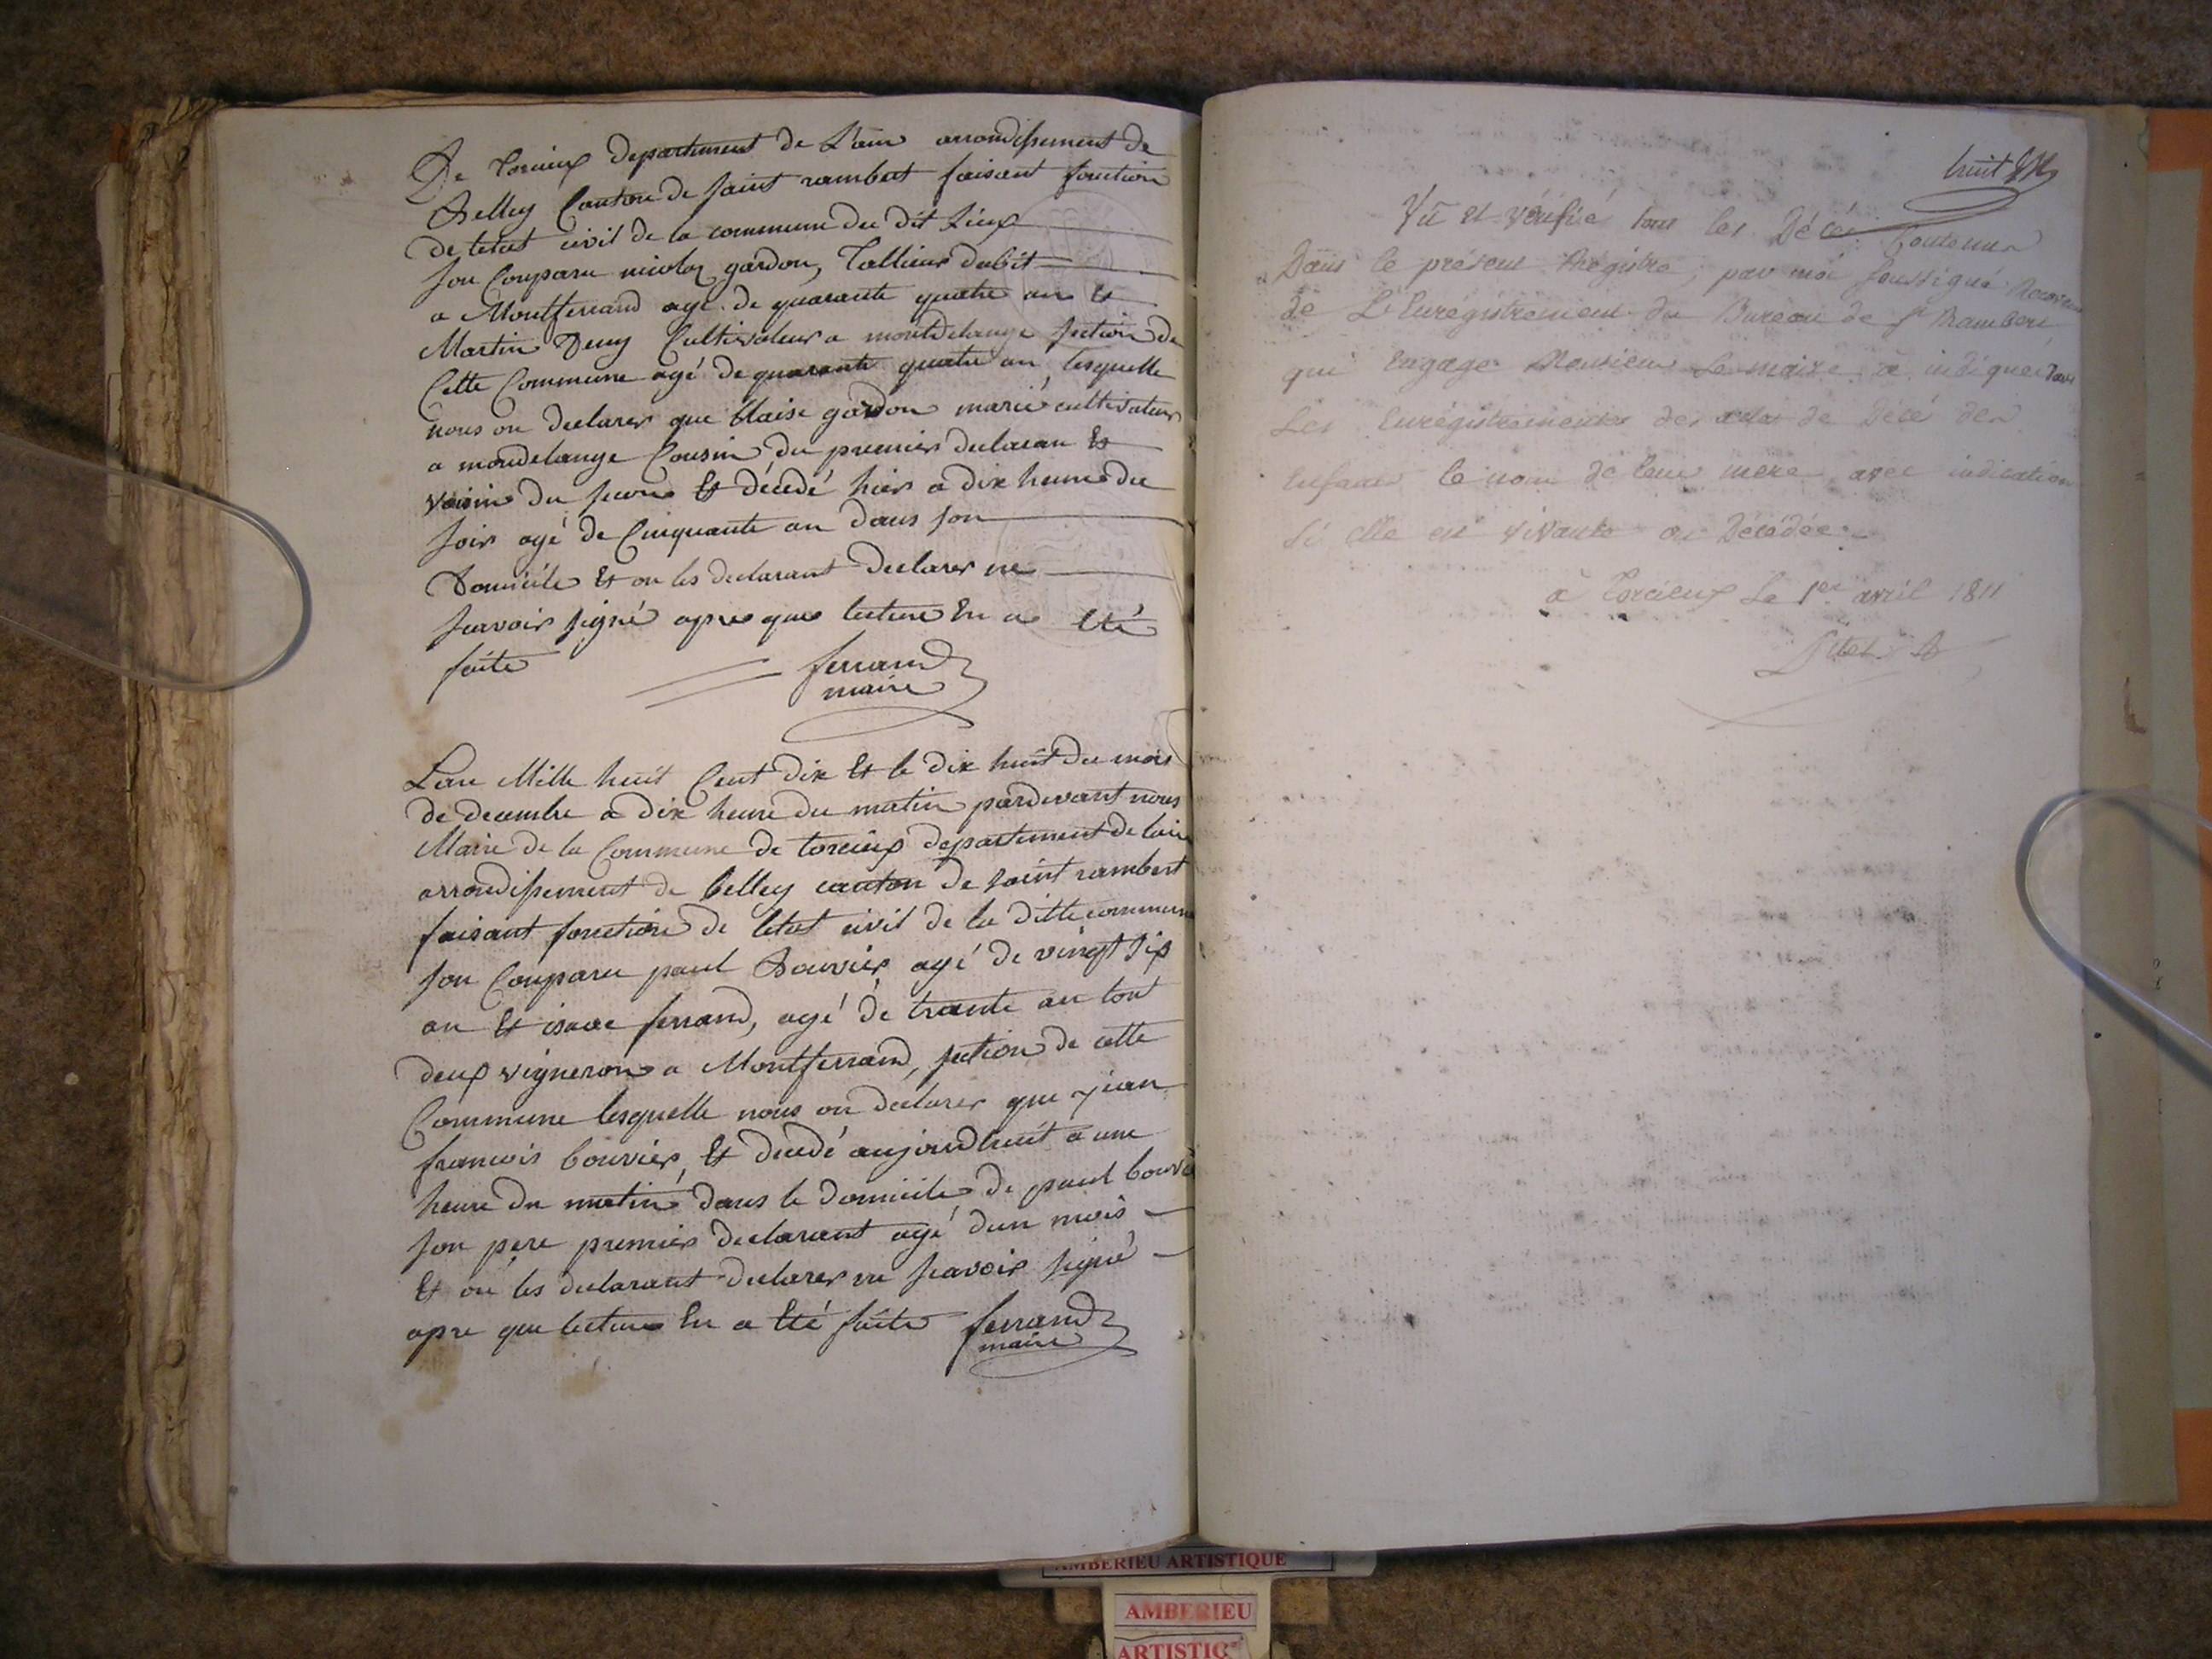 De torcieux departement de Lain arrondissement de
Belley Canton de saint rambert faisant fonction
de letat civil de la commune du dit Lieux
son Comparu nicolas gardon, Tallieur dabit
a Montferrand agé de quarante quatre an Et
Martin Deny Cultivateur a montdelange section de
Cette Commune agé de quarante quatre an lesquelle
nous on declarer que blaise gardon marié cultivateur
a mondelange Cousin du premier declaran Et
voisin du secon Et décédé hier a dix heure du
soir agé de Cinquante an dans son
Domicile Et on les declarant declarer ne
scavoir signé apre que lecture En a Eté
faite ferrand
maire
Lan Mille huit Cent dix Et le dix huit du mois
de decembre a dix heure du matin pardevant nous
Maire de la Commune de torcieux departement de lain
arrondissement de belley canton de saint rambert
faisant fonction de letat civil de la ditte commune
son Comparu paul Bouvier agé de vingt six
an Et isaac ferrand, agé de trante an tout
deux vigneron a Montferrand, section de cette
Commune lesquelle nous on declarer que jean
francois bouvier Et decedé aujourdhuit a une
heure du matin dans le domicile de paul bouvié
son pere premier declarant agé dun mois
Et on les declarant declarer ne scavoir signé
apre que lecture En a Eté faite ferrand
maire
huit
Vu et vérifié tous les Décés Contenus
Dans le présent Régistre, par moi soussigné Receveur
de L'Enrégistrement du Bureau de St Rambert
qui Engage Monsieur Le maire à indiquer dans
Les Enrégistrements des actes de Décé des
Enfants le nom de leur mere avec indication
Si elle est vivante ou Décédée.
à Torcieux Le 1er avril 1811
AMBERIEU ARTISTIQUE
AMBERIEU
ARTISTIQ